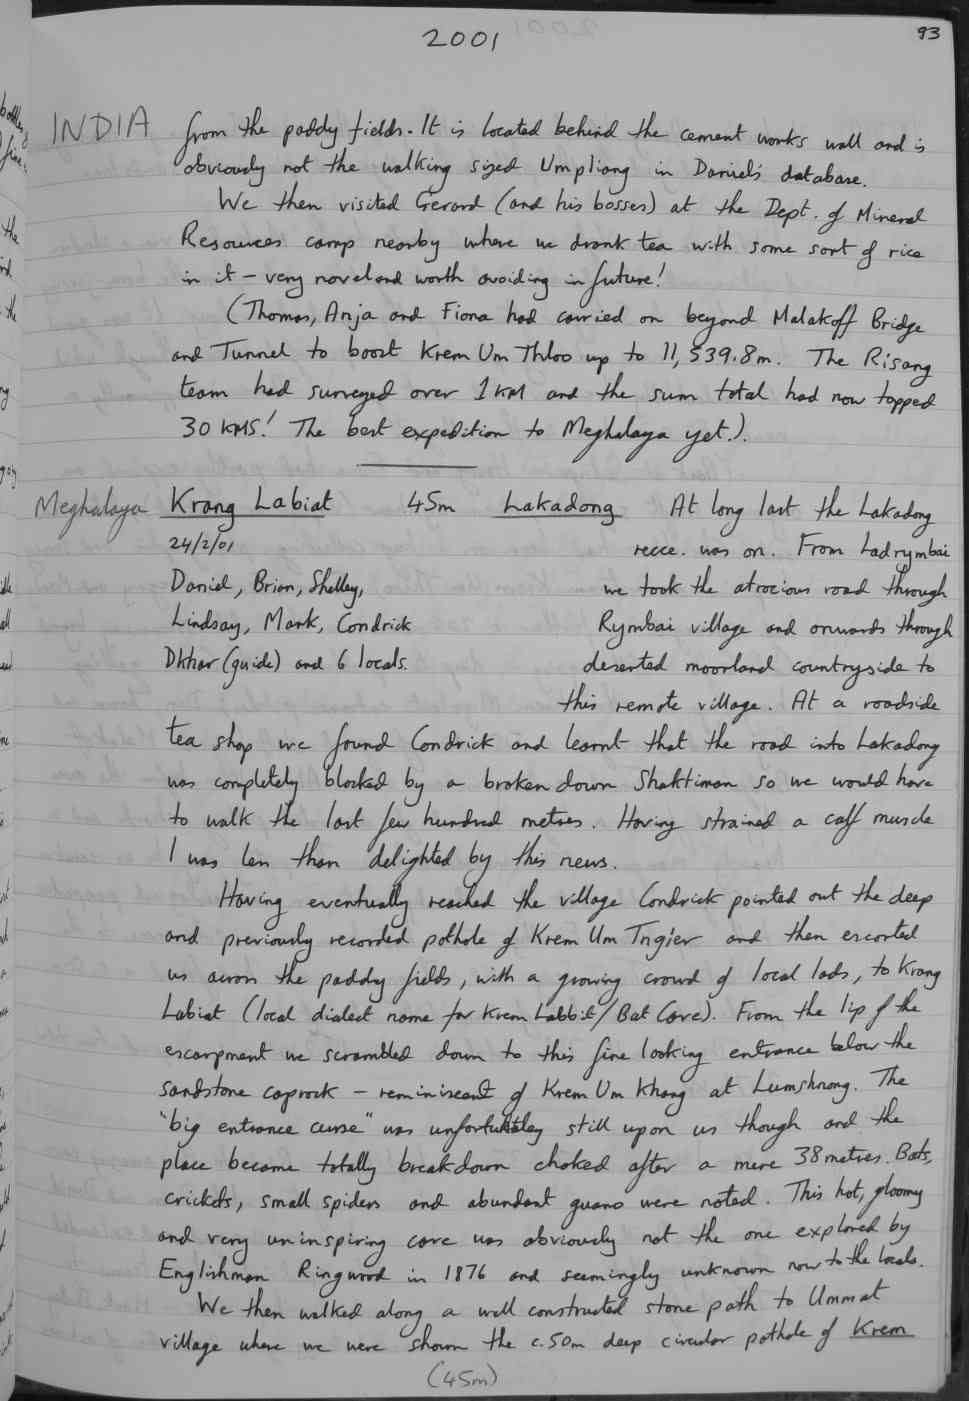 2001
93
INDIA from the paddy fields. It is located behind the cement works wall and is
obviously not the walking sized Umpliang in Daniel's database.
We then visited Gerard (and his bosses) at the Dept. of Mineral
Resources camp nearby where we drank tea with some sort of rice
in it - very novel and worth avoiding in future!
(Thomas, Anja and Fiona had carried on beyond Malakoff Bridge
and Tunnel to boost Krem Um Thloo up to 11,539.8m. The Risang
team had surveyed over 1KM and the sum total had now topped
30 KMS! The best expedition to Meghalaya yet.).
Meghalaya Krang Labiat 45m Lakadong At long last the Lakadong
24/2/01 recce. was on. From Ladrymbai
Daniel, Brian, Shelley, we took the atrocious road through
Lindsay, Mark, Condrick Rymbai village and onwards through
Dkhar (guide) and 6 locals. deserted moorland countryside to
this remote village. At a roadside
tea shop we found Condrick and learnt that the road into Lakadong
was completely blocked by a broken down Shaktiman so we would have
to walk the last few hundred metres. Having strained a calf muscle
I was less than delighted by this news.
Having eventually reached the village Condrick pointed out the deep
and previously recorded pothole of Krem Um Tngier and then escorted
us across the paddy fields, with a growing crowd of local lads, to Krang
Labiat (local dialect name for Krem Labbit/Bat Cave). From the lip of the
escarpment we scrambled down to this fine looking entrance below the
sandstone caprock - reminiscent of Krem Um Khang at Lumshnong. The
"big entrance curse" was unfortunatley still upon us though and the
place became totally breakdown choked after a mere 38 metres. Bats,
crickets, small spiders and abundant guano were noted. This hot, gloomy
and very uninspiring cave was obviously not the one explored by
Englishman Ringwood in 1876 and seemingly unknown now to the locals.
We then walked along a well constructed stone path to Ummat
village where we were shown the c.50m deep circular pothole of Krem
(45m)